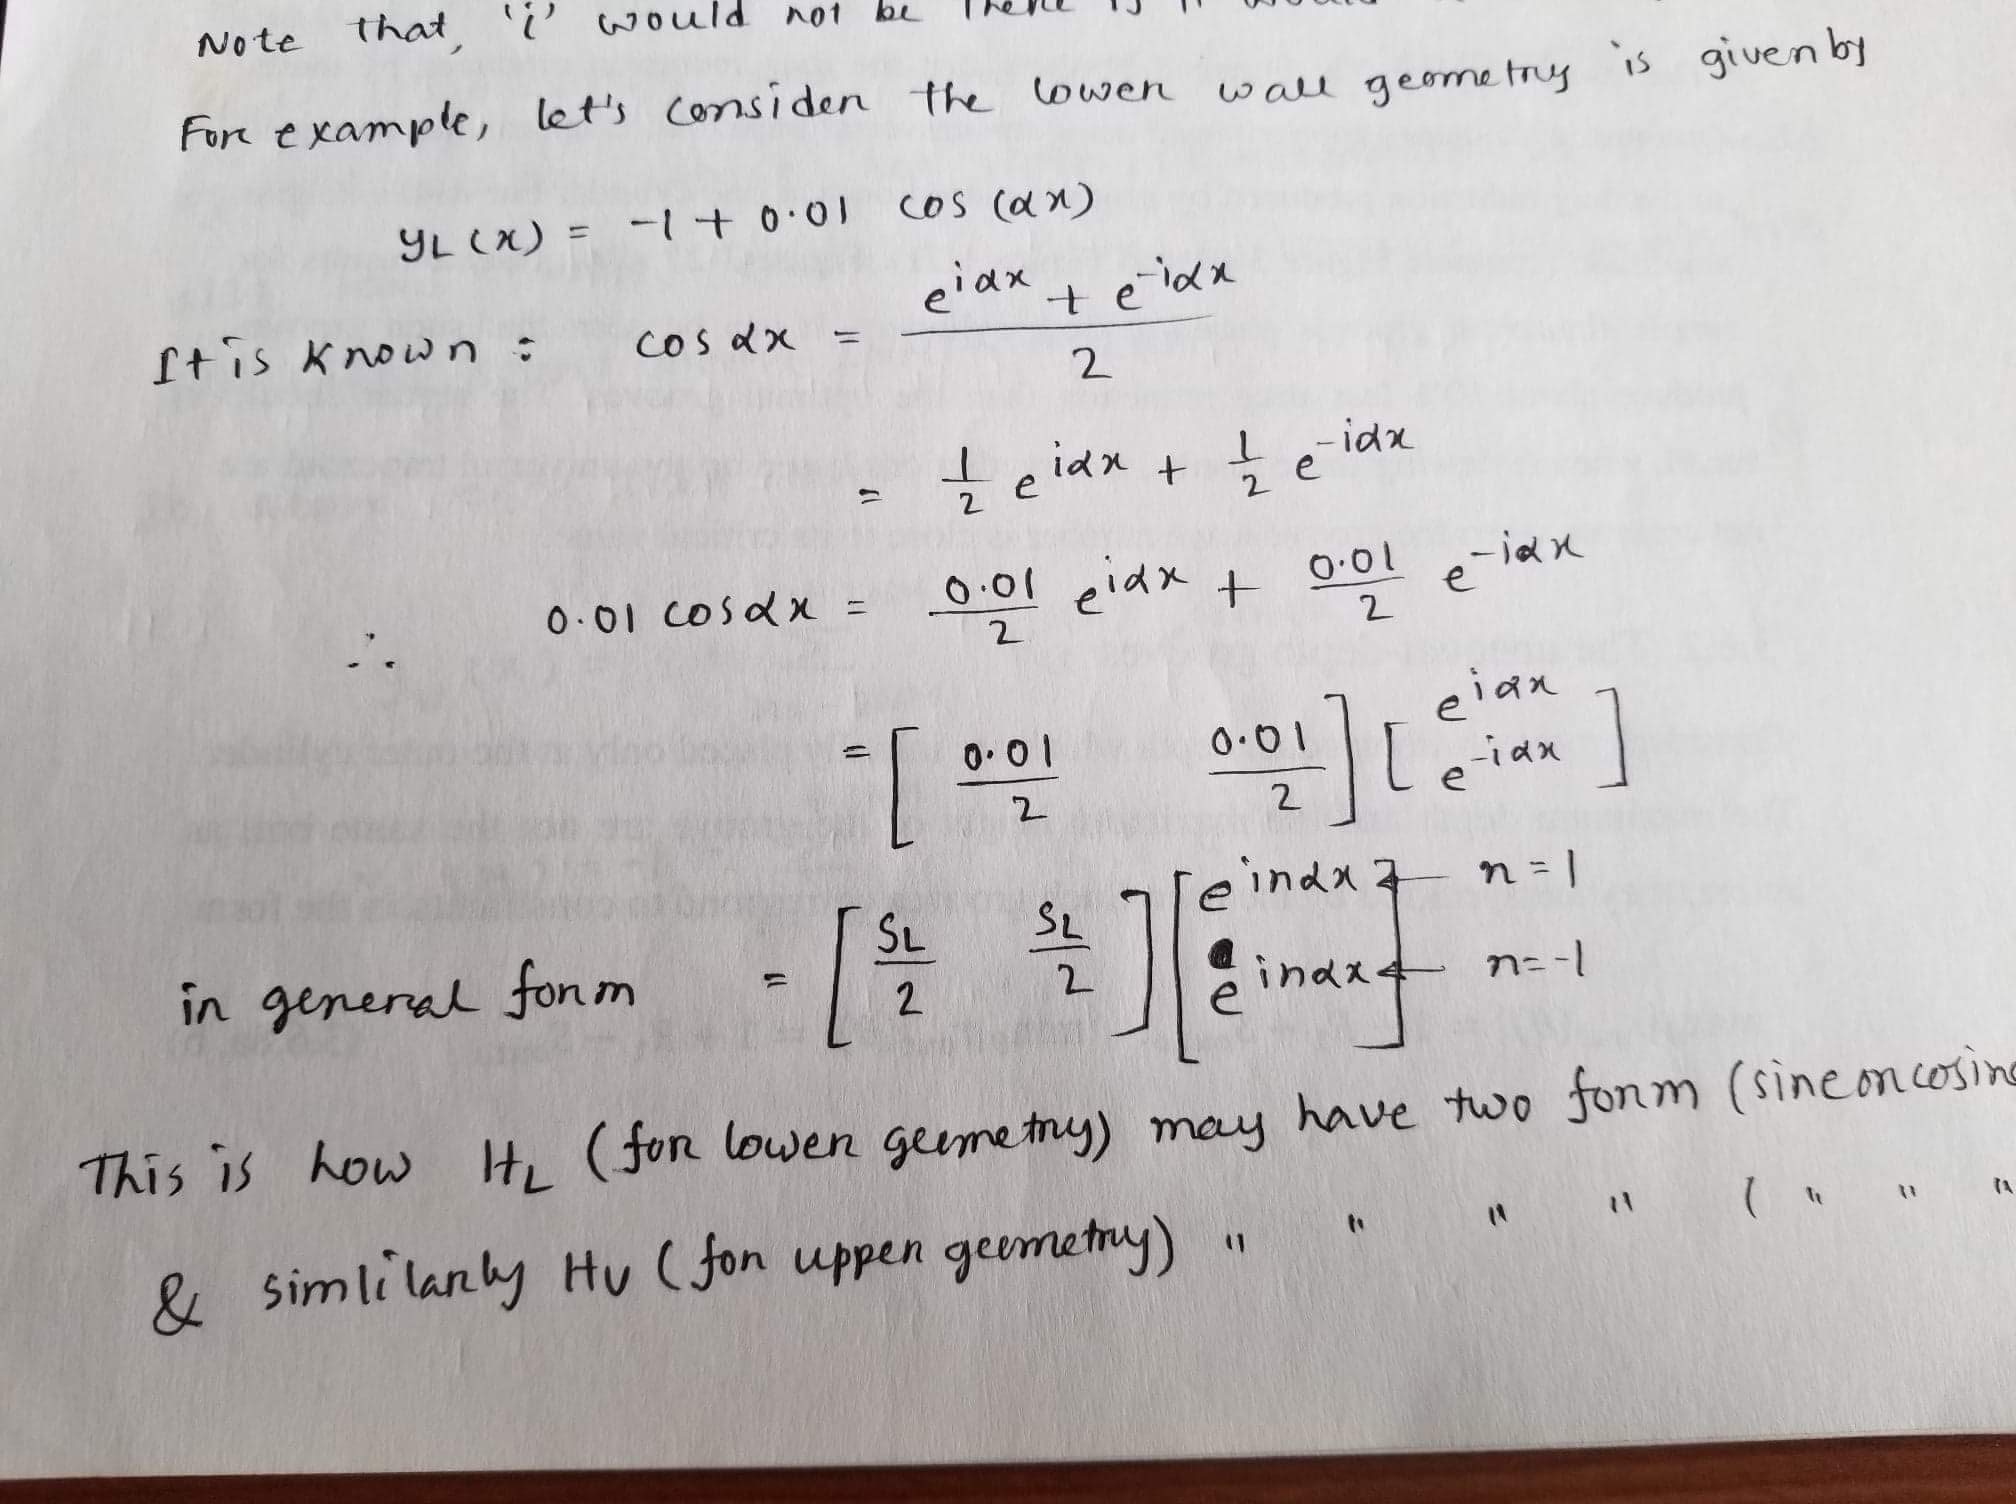 Note that, 'i' would not be
For example, let's consider the lower wall geometry is given by
yL (x) = -1 + 0.01 cos (αx)
It is known : cos αx = (e^{iαx} + e^{-iαx}) / 2
= 1/2 e^{iαx} + 1/2 e^{-iαx}
∴ 0.01 cos αx = 0.01/2 e^{iαx} + 0.01/2 e^{-iαx}
= [ 0.01/2 0.01/2 ] [ e^{iαx} e^{-iαx} ]
in general form = [ SL/2 SL/2 ] [ e^{inαx} e^{inαx} ] n = 1 n = -1
This is how HL (for lower geemetry) may have two form (sine or cosine
& simlilarly HU (for upper geemetry) " " " " ( " " "